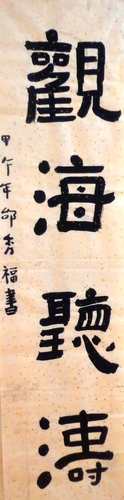 觀海聽濤
甲午年邰秀福書